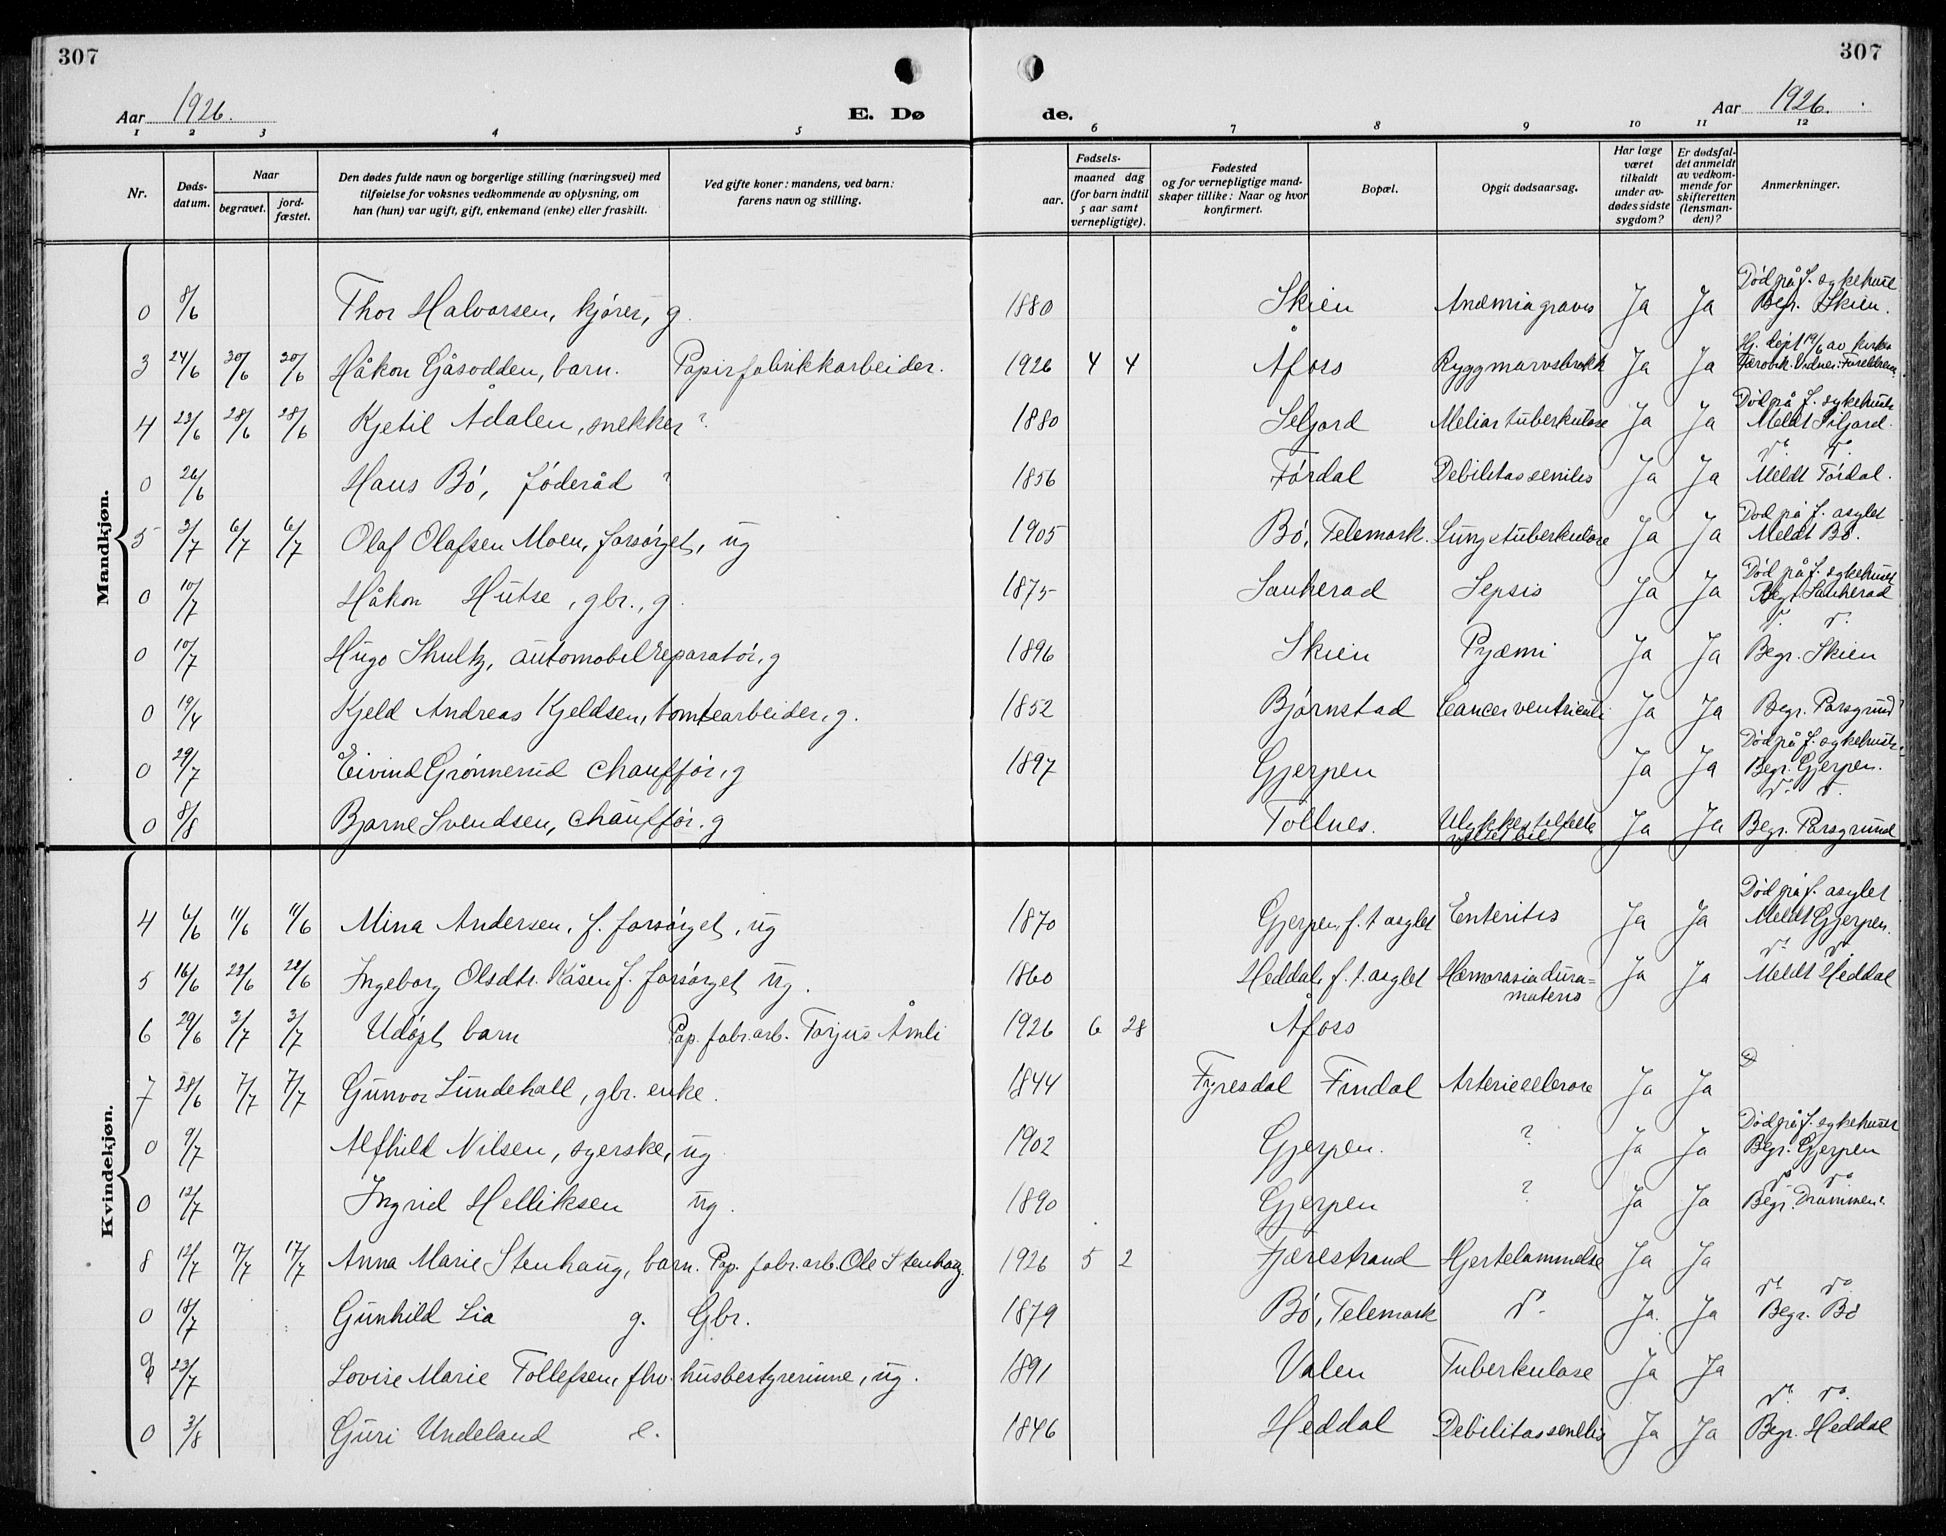 307
307
Aar 1926.
E. Dø
de.
Aar 1926.
1 2 3 4 5 6 7 8 9 10 11 12
Nr.
Døds-
datum.
Naar
begravet.
jord-
fæstet.
Den dødes fulde navn og borgerlige stilling (næringsvei) med
tilføielse for voksnes vedkommende av oplysning, om
han (hun) var ugift, gift, enkemand (enke) eller fraskilt.
Ved gifte koner: mandens, ved barn:
farens navn og stilling.
Fødsels-
aar.
maaned dag
(for barn indtil
5 aar samt
vernepligtige).
Fødested
og for vernepligtige mand-
skaper tillike: Naar og hvor
konfirmert.
Bopæl.
Opgit dødsaarsag.
Har læge
været
tilkaldt
under av-
dødes sidste
sygdom?
Er dødsfal-
det anmeldt
av vedkom-
mende for
skifteretten
(lensman-
den)?
Anmerkninger.
Mandkjøn.
0 8/6 Thor Halvorsen, kjører, g. 1880 Skien Anæmia gravis Ja Ja Død på f. sykehuset Begr. Skien.
3 24/6 30/6 30/6 Håkon Gåsodden, barn. Papirfabrikkarbeider. 1926 4 4 Åfoss Ryggmarvsbrokk Ja Ja Hj. døpt 19/6 av kirke
4 23/6 28/6 28/6 Kjetil Ådalen, snekker ? 1880 Seljord Meliartuberkulose Ja Ja Død på f. sykehuset Meldt Siljord.
0 26/6 Hans Bö, föderåd ? 1856 Tördal Debilitas senilis Ja Ja do. do. Meldt Tördal.
5 3/7 6/7 6/7 Olaf Olafsen Moen, forsörget, ug 1905 Bö, Telemark. Lungetuberkulose Ja Ja Död på f. asylet Meldt Bö.
0 10/7 Håkon Hutse, gbr., g. 1875 Sauherad Sepsis Ja Ja Död på f. sykehuset Begr. Sauherad
0 10/7 Hugo Shultz, automobilreparatör, g 1896 Skien Pyæmi Ja Ja do. do. Begr. Skien
0 19/4 Kjeld Andreas Kjeldsen, tomtearbeider, g. 1852 Björnstad Cancer ventriculi Ja Ja Begr. Porsgrund
0 29/7 Eivind Grönnerud chaufför, g 1897 Gjerpen Ja Ja Död på f. sykehuset Begr. Gjerpen.
0 8/8 Bjarne Svendsen, chaufför. g Tollnes. Ulykkestilfelle Ja Ja do. do. Begr. Porsgrund
Kvindekjøn.
4 6/6 11/6 11/6 Mina Andersen, f. forsörget, ug 1870 Gjerpen, f. t asylet Enteritis Ja Ja Död på f. asylet Meldt Gjerpen.
5 16/6 22/6 22/6 Ingeborg Olsdtr. Kåsen f. forsörget ug. 1860 Heddal, f. t. asylet Hæmorasia dura=
materis Ja Ja do do Meldt Heddal
6 29/6 3/7 3/7 Udöpt barn Pap. fabr. arb. Torjus Åmli 1926 6 28 Åfoss
7 28/6 7/7 7/7 Gunvor Lundehall, gbr. enke. 1844 Fyresdal Findal Arteriesclerose Ja Ja
0 9/7 Alfhild Nilsen, syerske, ug 1902 Gjerpen. ? Ja Ja Död på f. sykehuset Begr. Gjerpen
0 12/7 Ingrid Helliksen ug. 1890 Gjerpen ? Ja Ja do do Begr. Drammen.
8 12/7 17/7 17/7 Anna Marie Stenhaug, barn. Pap. fabr. arb. Ole Stenhaug. 1926 5 2 Fjærestrand Hjertelammelse Ja Ja
0 18/7 Gunhild Lia g. Gbr. 1879 Bö, Telemark do. Ja. Ja do do Begr. Bö
9 23/7 Lovise Marie Tollefsen, fhv. husbestyrerinne, ug. 1891 Valen Tuberkulose Ja Ja
0 3/8 Guri Undeland e. 1846 Heddal Debilitas senilis Ja Ja do. do. Begr. Heddal